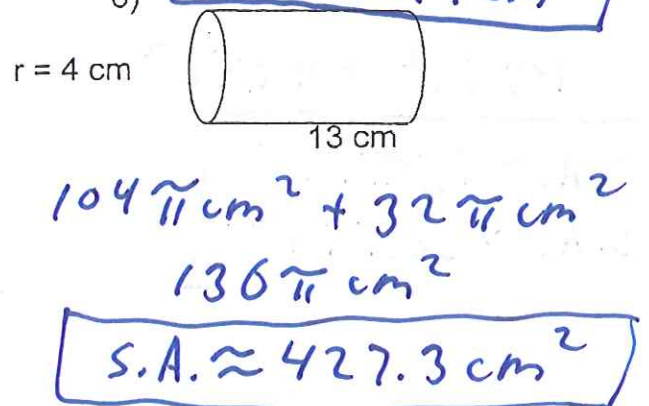 6)
r = 4 cm
13 cm
104π cm² + 32π cm²
136π cm²
S.A. ≈ 427.3 cm²